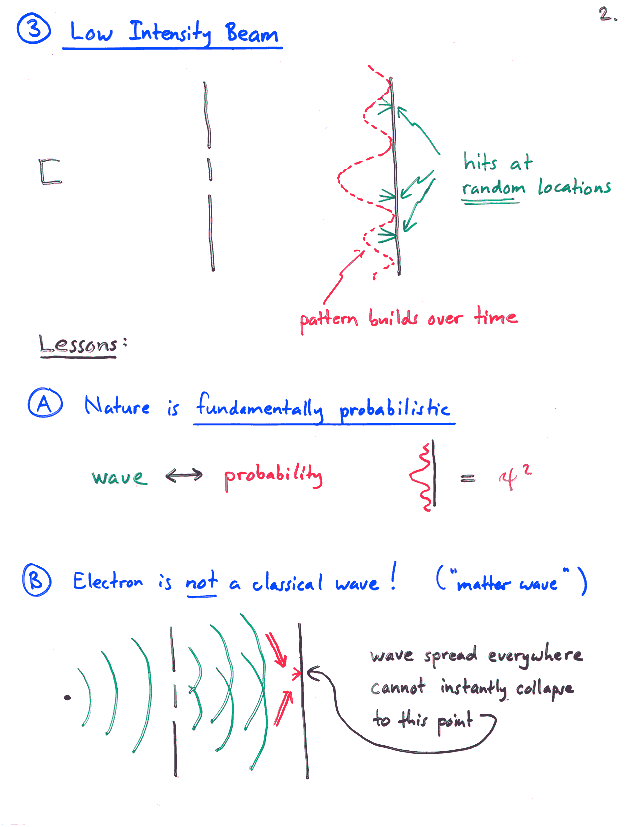 2.
③ Low Intensity Beam
hits at
random locations
pattern builds over time
Lessons:
Ⓐ Nature is fundamentally probabilistic
wave ↔ probability = ψ²
Ⓑ Electron is not a classical wave! ("matter wave")
wave spread everywhere
cannot instantly collapse
to this point